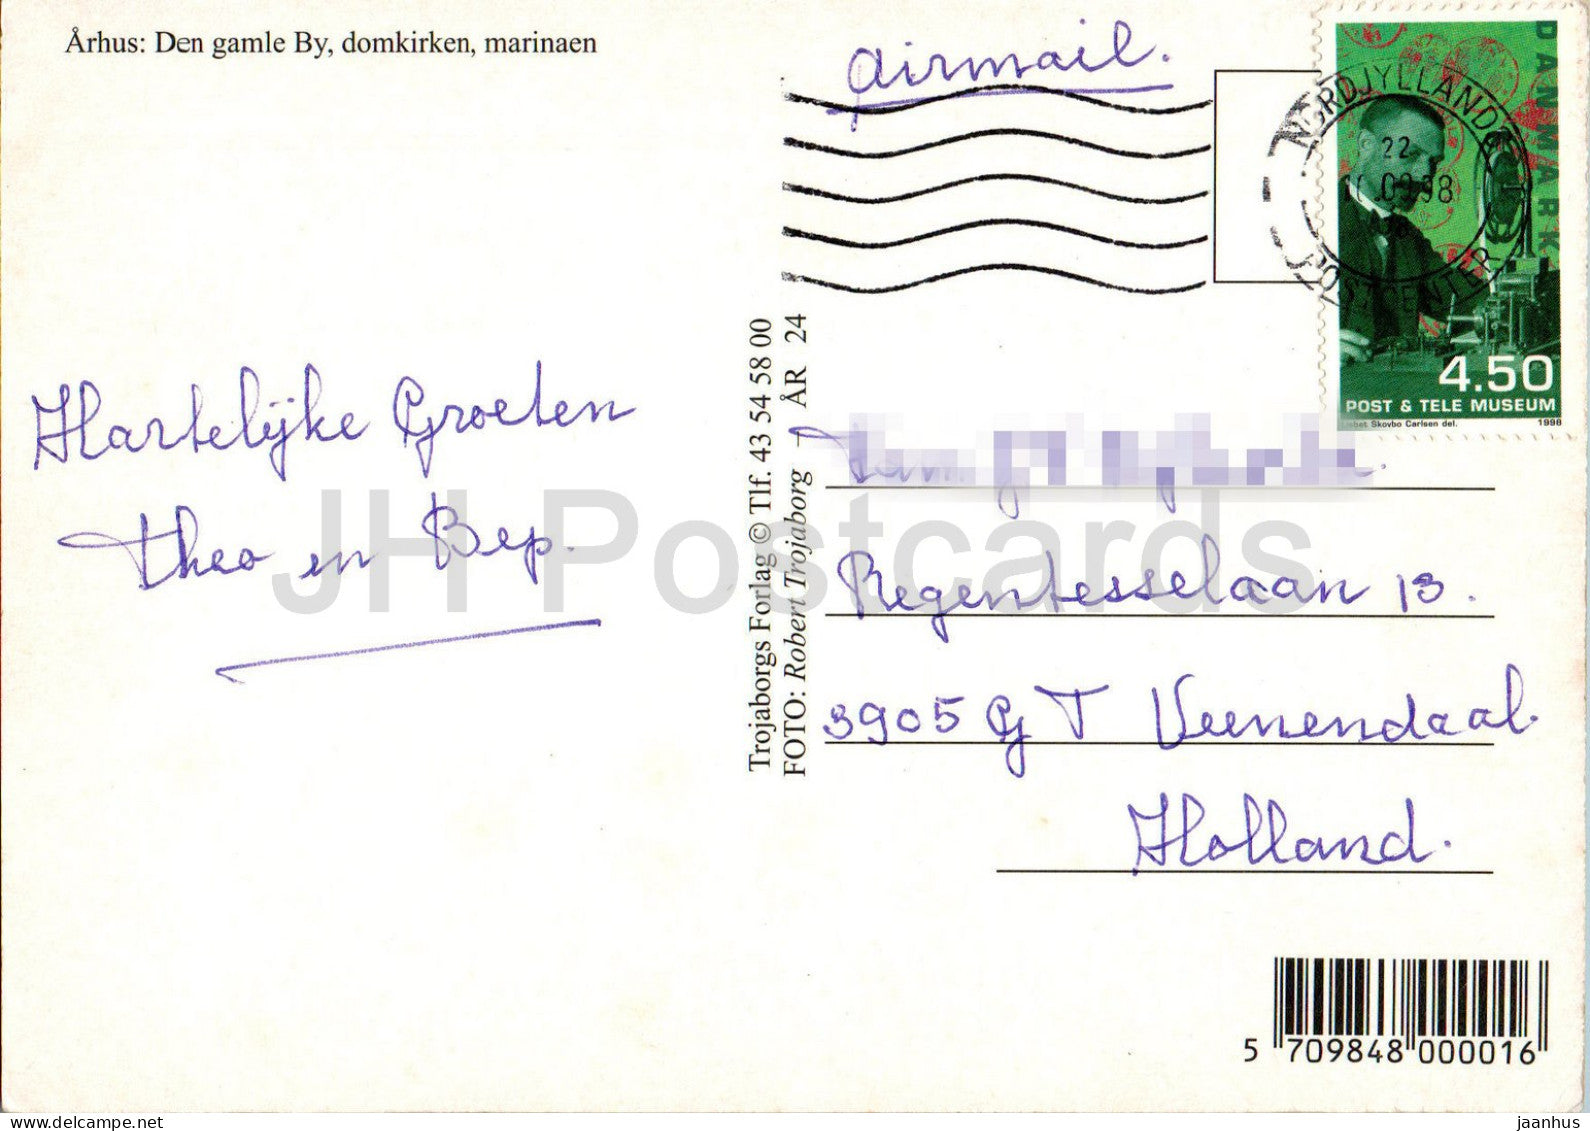 Århus: Den gamle By, domkirken, marinaen
airmail.
DANMARK
NORDJYLLANDS
22
.09.98
POSTCENTER
4.50
POST & TELE MUSEUM
Lisbet Skovbo Carlsen del. 1998
Hartelijke Groeten
Theo en Bep.
Trojaborgs Forlag © Tlf. 43 54 58 00
FOTO: Robert Trojaborg ÅR 24
Regentesselaan 13.
3905 GT Veenendaal.
Holland.
JH Postcards
5 709848 000016
www.delcampe.net
jaanhus